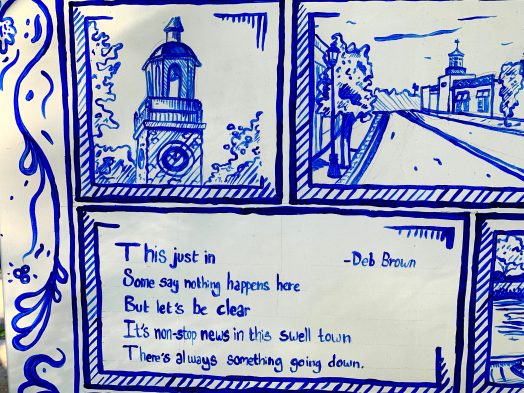 This just in
-Deb Brown
Some say nothing happens here
But let's be clear
It's non-stop news in this swell town
There's always something going down.